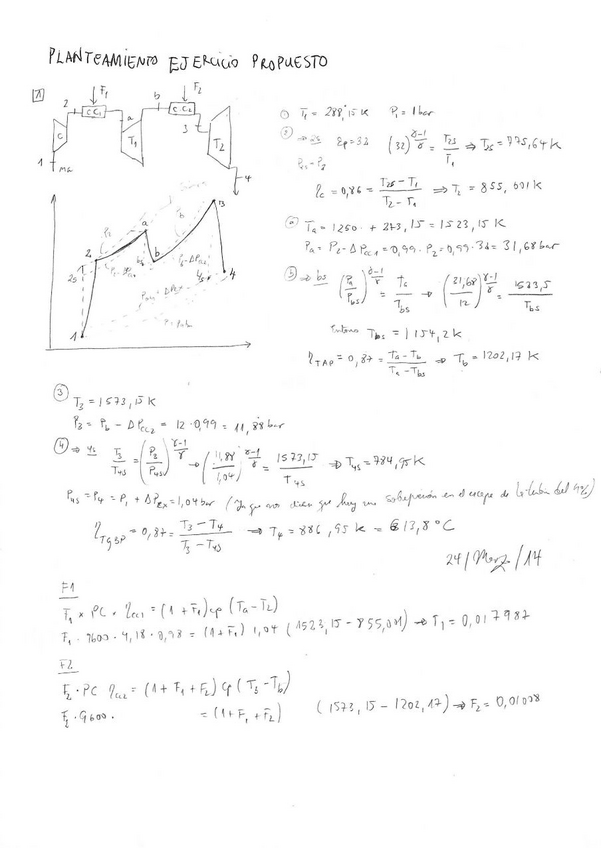 PLANTEAMIENTO EJERCICIO PROPUESTO
1
F1 F2
2 CC1 a b CC2 3
C T1 T2
1 4
① T1 = 288,15 K P1 = 1 bar
② ⇒ 2s εp = 32 (32)^(γ-1/γ) = T2s/T1 ⇒ T2s = 775,64 K
P2s = P2
ηc = 0,86 = (T2s - T1)/(T2 - T1) ⇒ T2 = 855,001 K
ⓐ Ta = 1250 + 273,15 = 1523,15 K
Pa = P2 - ΔPcc1 = 0,99 · P2 = 0,99 · 32 = 31,68 bar
ⓑ ⇒ bs (Pa/Pbs)^(γ-1/γ) = Ta/Tbs → (31,68/12)^(γ-1/γ) = 1523,5/Tbs
Entonces Tbs = 1154,2 K
ηTAP = 0,87 = (Ta - Tb)/(Ta - Tbs) ⇒ Tb = 1202,17 K
2 a b 3
2s bs 4s 4
P=1bar
1
③ T3 = 1573,15 K
P3 = Pb - ΔPcc2 = 12 · 0,99 = 11,88 bar
④ ⇒ 4s T3/T4s = (P3/P4s)^(γ-1/γ) → (11,88/1,04)^(γ-1/γ) = 1573,15/T4s ⇒ T4s = 784,95 K
P4s = P4 = P1 + ΔPEx = 1,04 bar (Ya que nos dicen que hay una sobrepresión en el escape de la turbina del 4%)
ηTGBP = 0,87 = (T3 - T4)/(T3 - T4s) → T4 = 886,95 K = 613,8 °C
24/Marz/14
F1
F1 x PC x ηcc1 = (1 + F1) cp (Ta - T2)
F1 · 9600 · 4,18 · 0,98 = (1 + F1) 1,04 (1523,15 - 855,001) → F1 = 0,017987
F2
F2 · PC ηcc2 = (1 + F1 + F2) cp (T3 - Tb)
F2 · 9600 · = (1 + F1 + F2) (1573,15 - 1202,17) → F2 = 0,01008